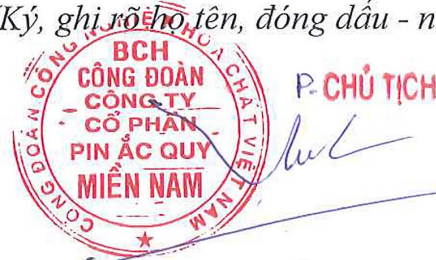 Ký, ghi rõ họ, tên, đóng dấu - n
CÔNG ĐOÀN CÔNG NGHIỆP HÓA CHẤT VIỆT NAM
BCH
CÔNG ĐOÀN
CÔNG TY
CỔ PHẦN
PIN ẮC QUY
MIỀN NAM
P. CHỦ TỊCH